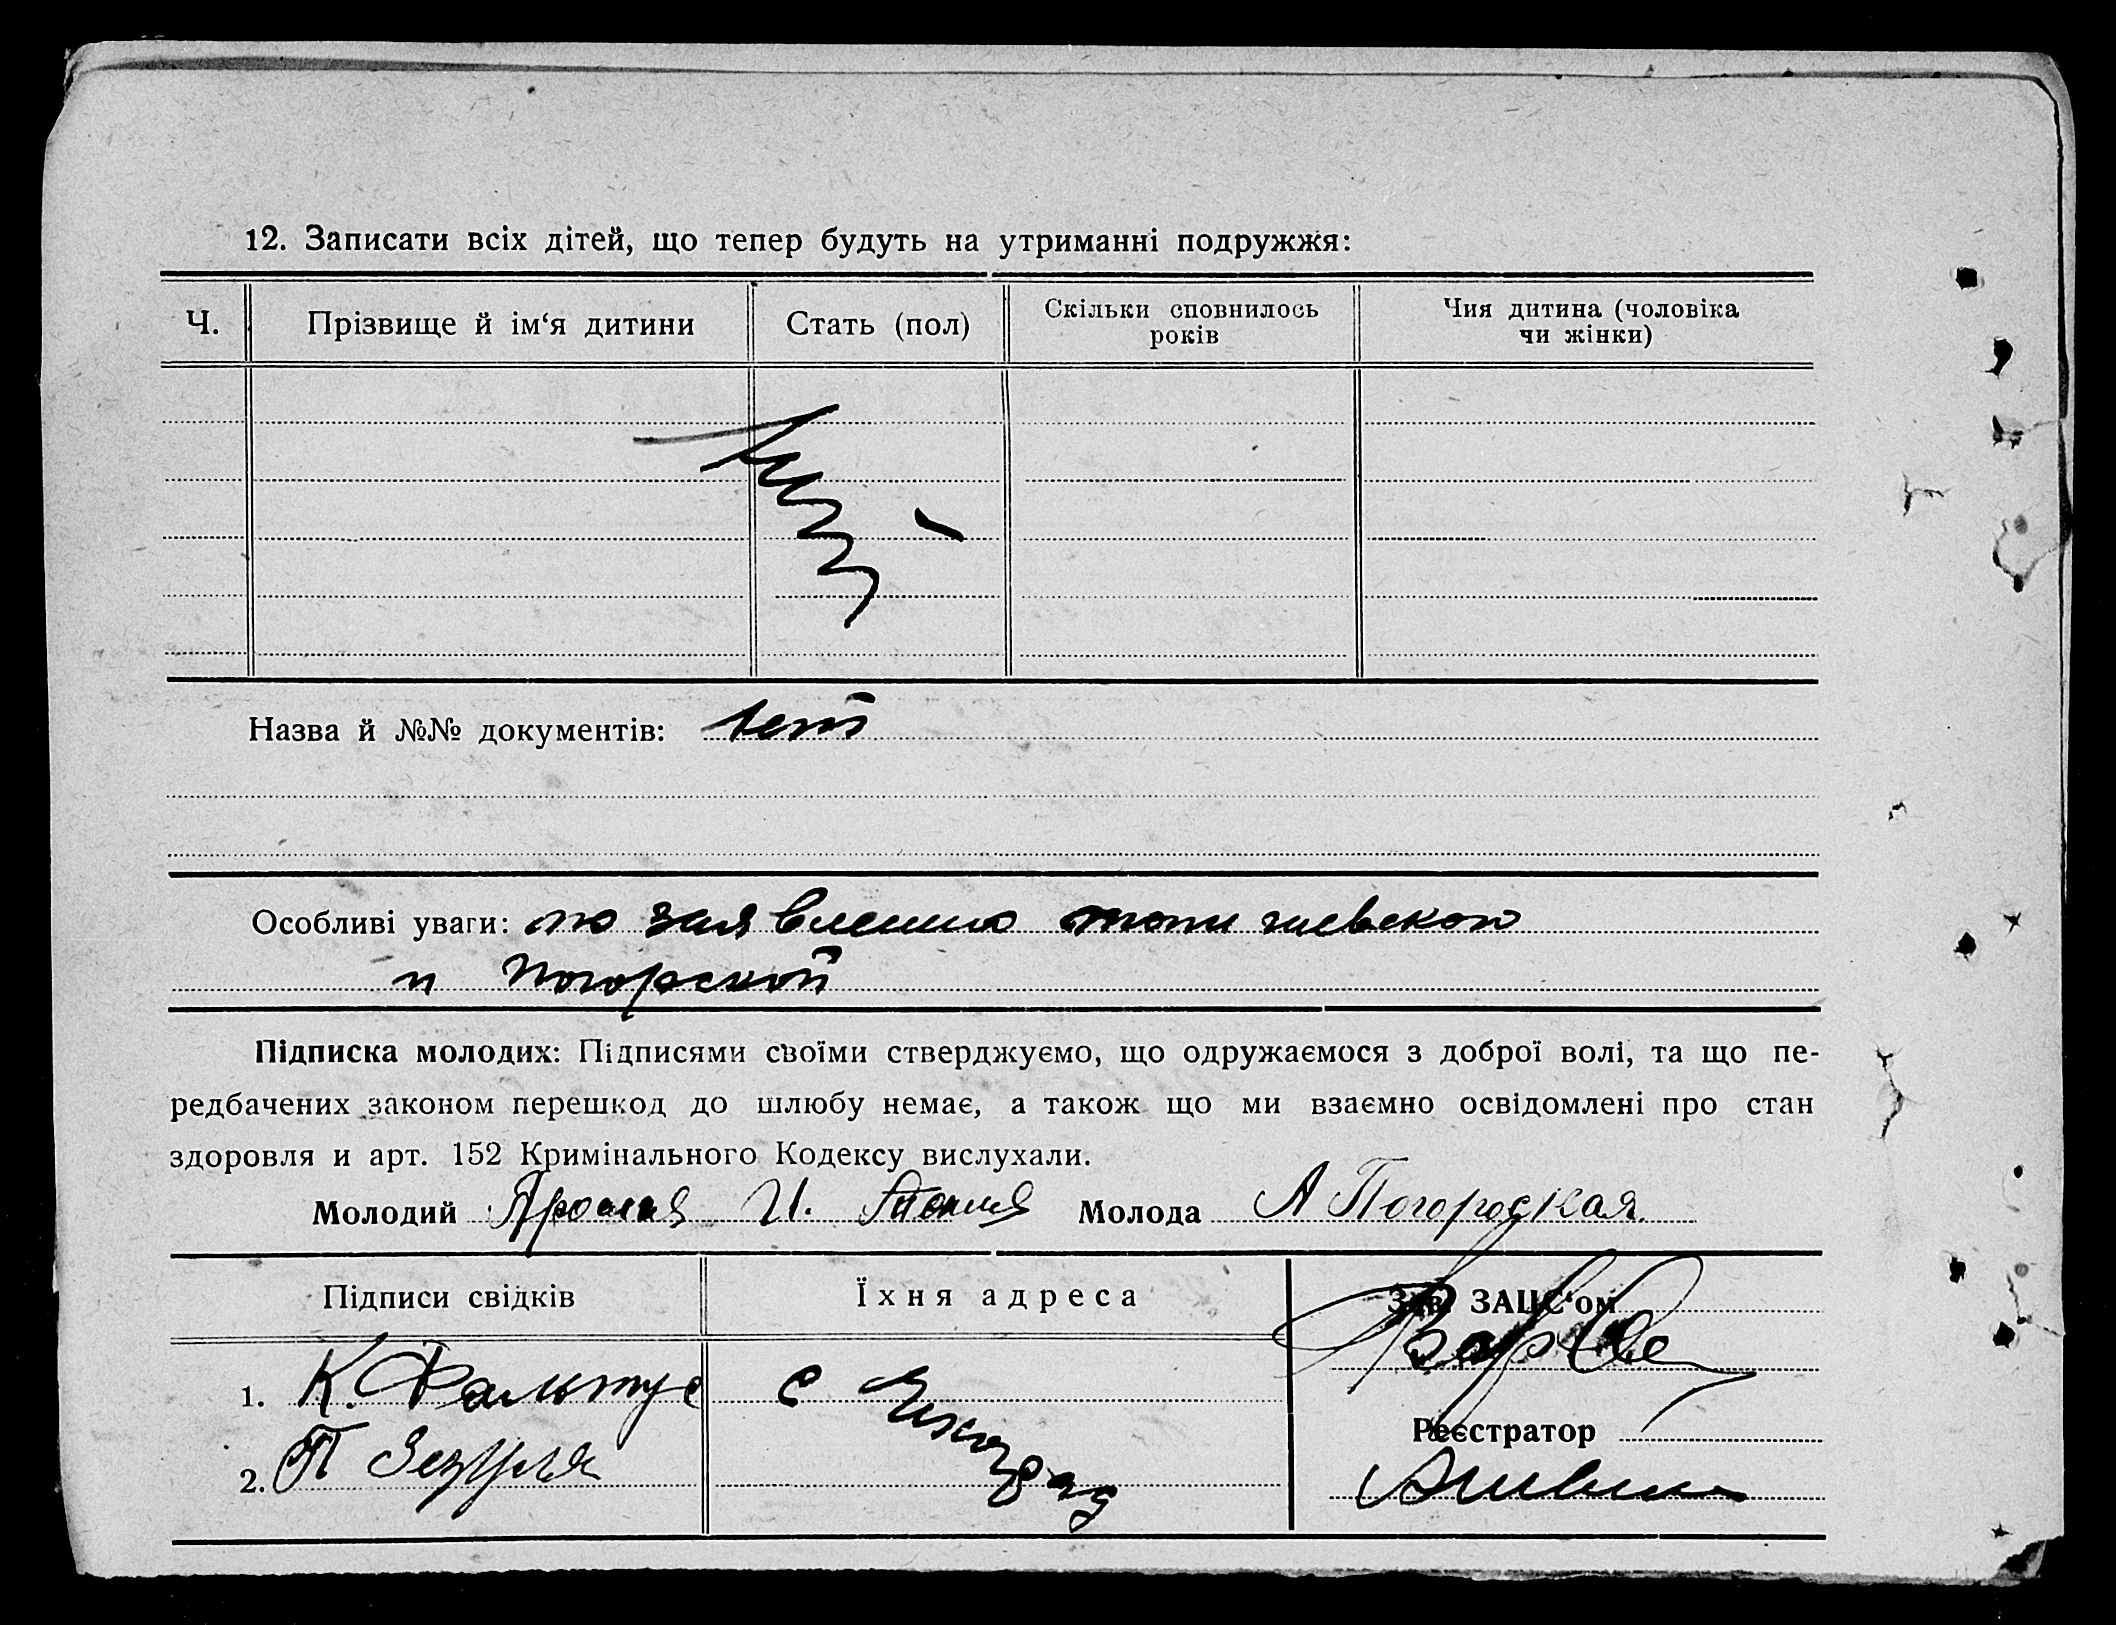 12. Записати всіх дітей, що тепер будуть на утриманні подружжя:
Ч. Прізвище й ім‘я дитини Стать (пол) Скільки сповнилось років Чия дитина (чоловіка чи жінки)
Назва й №№ документів: нет
Особливі уваги: по заявлению
и Погорской
Підписка молодих: Підписями своїми стверджуємо, що одружаємося з доброї волі, та що пе-
редбачених законом перешкод до шлюбу немає, а також що ми взаємно освідомлені про стан
здоровля и арт. 152 Кримінального Кодексу вислухали.
Молодий И. Молода А Погородская
Підписи свідків Їхня адреса Зав. ЗАЦС‘ом
1. К. Фальтус с
Реєстратор
2. П